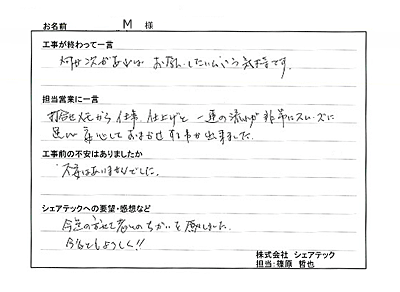 お名前 M 様
工事が終わって一言
お願いしたい 気持です。
担当営業に一言
打合せから仕事、仕上げと一連の流れが非常にスムーズに
安心しておまかせする事が出来ました。
工事前の不安はありましたか
不安はありませんでした。
シェアテックへの要望・感想など
ちがいを感じました
今后もよろしく!!
株式会社 シェアテック
担当:篠原 哲也